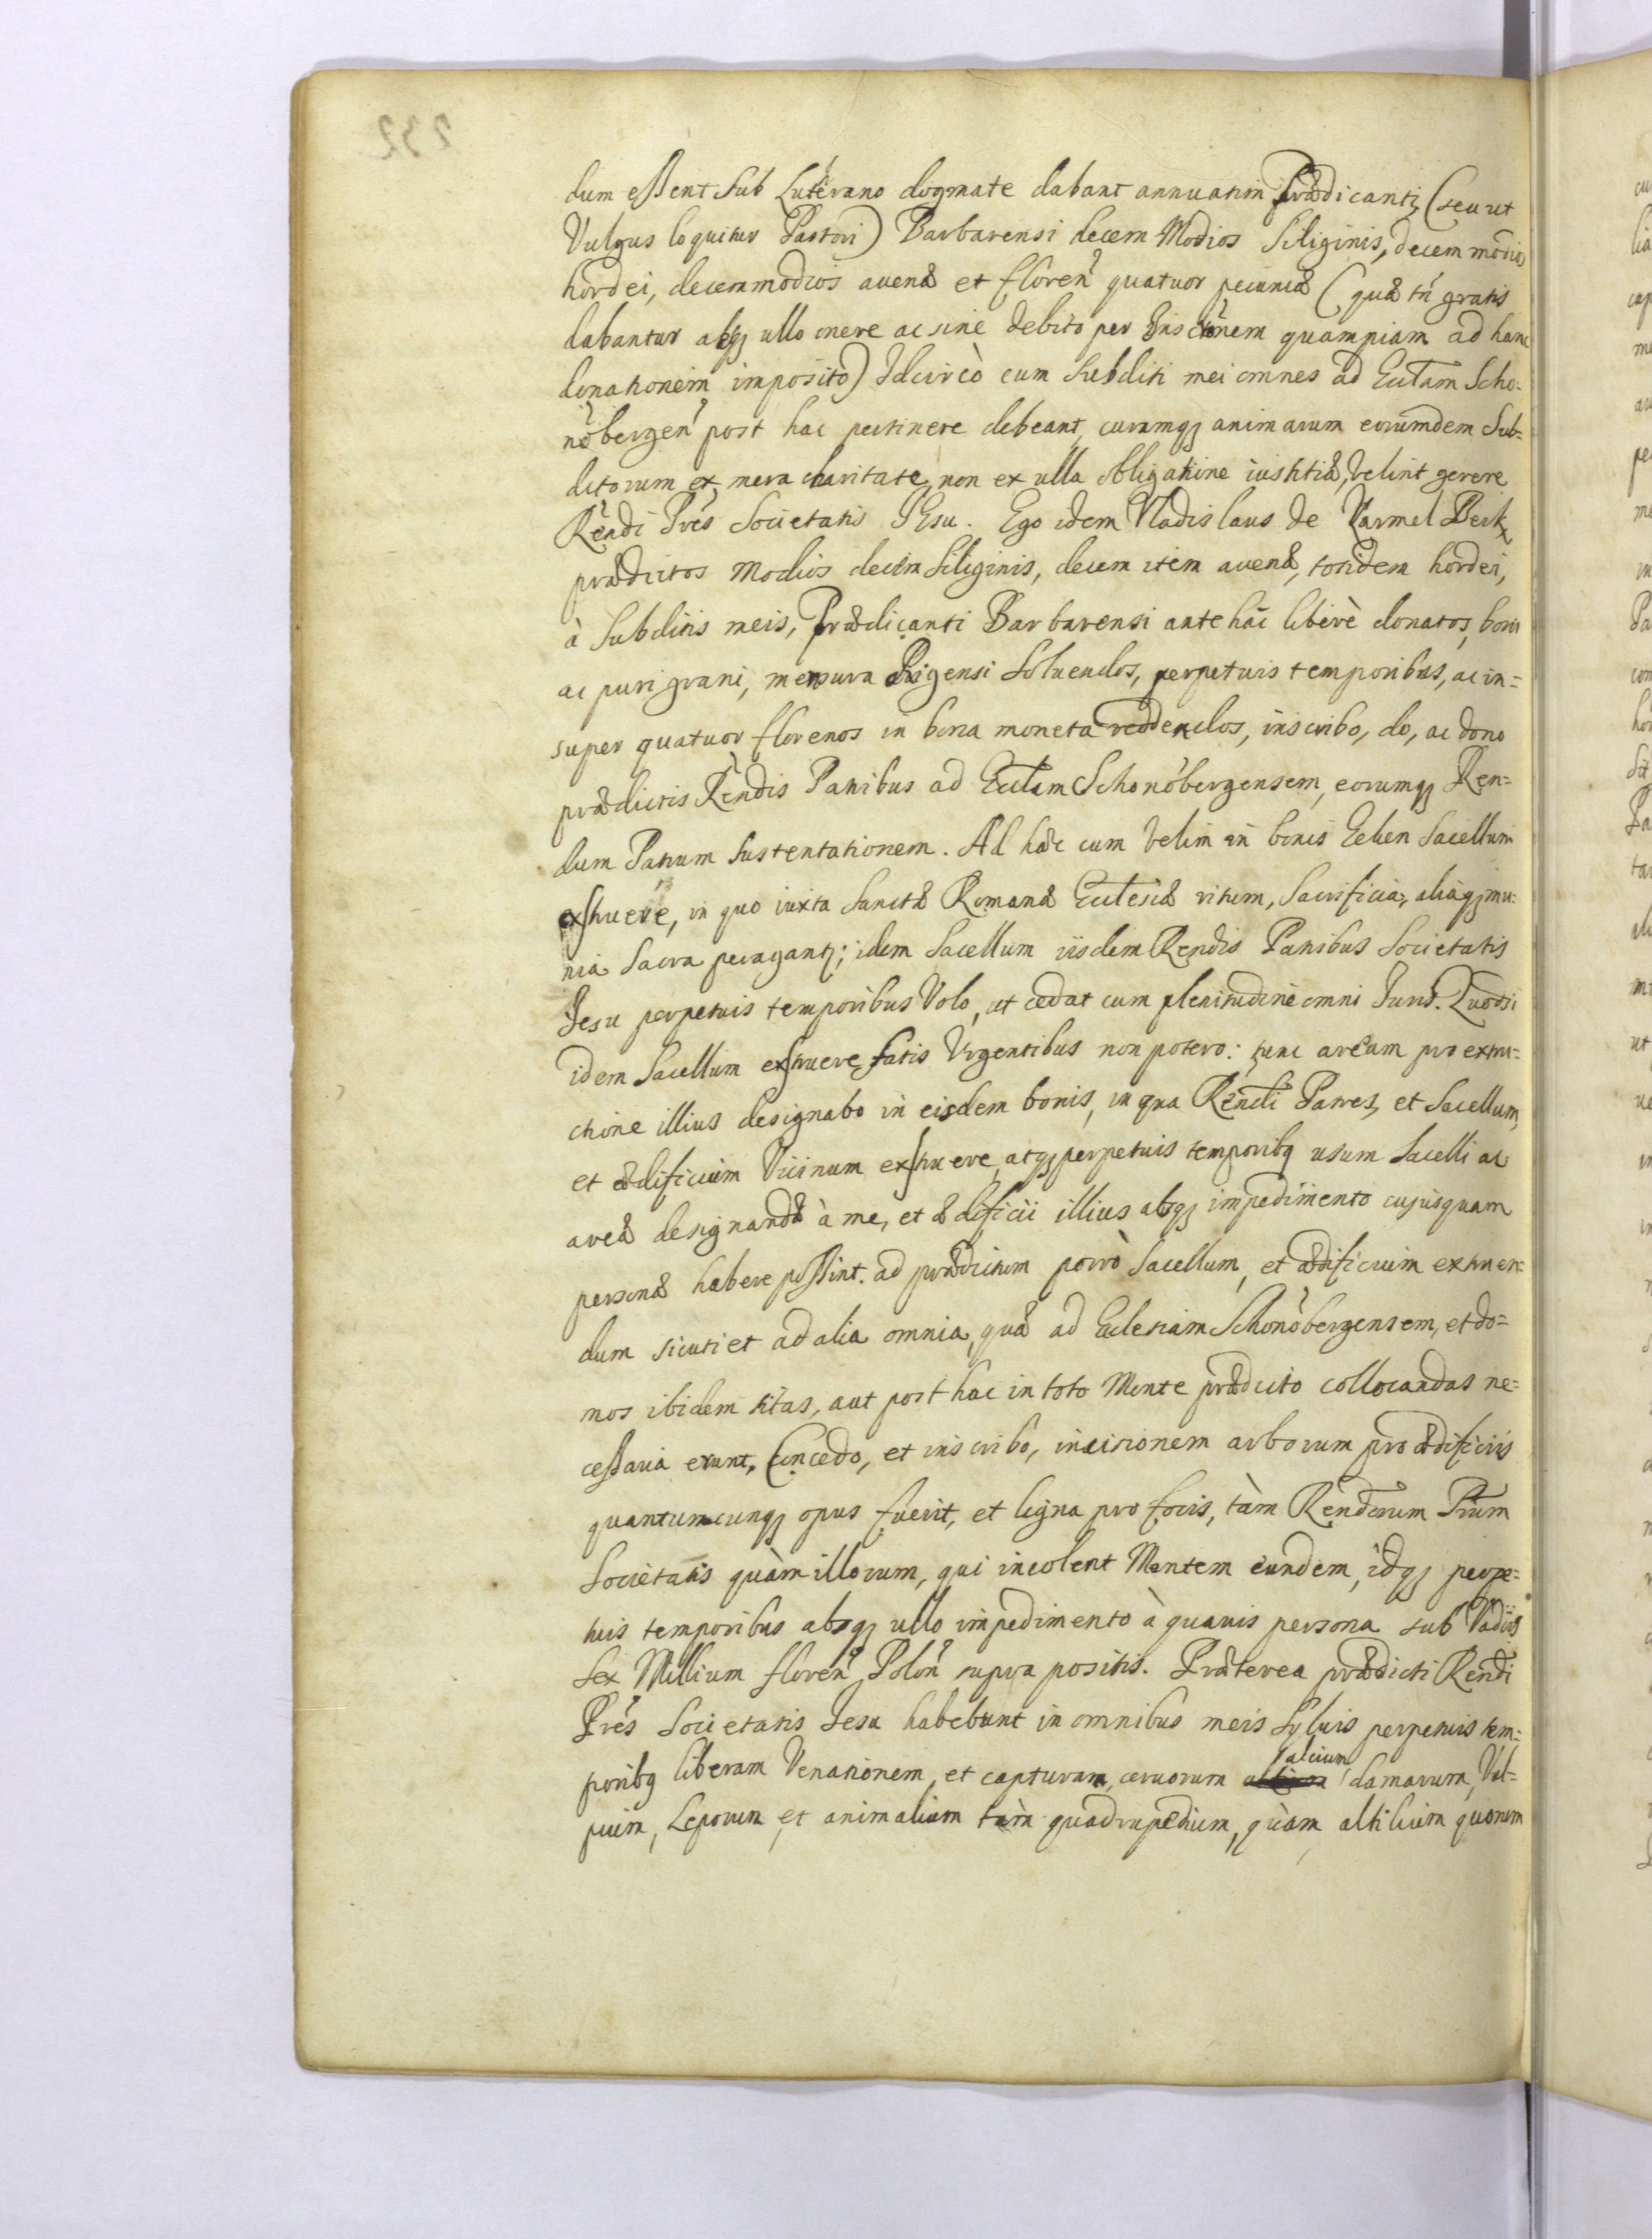 dum essent sub Luterano dogmate dabant annuatim Prædicanti (seu ut
Vulgus loquitur Pastori) Barbarensi decem Modios siliginis, decem modios
hordei, decem modios auenæ et floreñ quatuor pecuniæ (quæ tñ gratis
dabantur absq; ullo onere ac sine debito per Inscr͠onem quampiam ad hanc
donationem imposito) Idcircò cum subditi mei omnes ad Eccl͠am Scho=
nòbergeñ post hac pertinere debeant, curamq; animarum eorumdem sub=
ditorum ex mera charitate, non ex ulla obligatione iustitiæ, velint gerere
Rendi Pr͠es Societatis IEsu. Ego idem Vladislaus de Karmel Berk,
prædictos Modios decem siliginis, decem item auenæ, totidem hordei,
à subditis meis, Prædicanti Barbarensi ante hac liberè donatos, boni
ac puri grani, mensura Rigensi soluendos, perpetuis temporibus, ac in=
super quatuor florenos in bona moneta reddendos, inscribo, do, ac dono
prædictis Rendis Patribus ad Eccl͠am Schonòbergensem, eorumq; Ren=
dum Patrum sustentationem. Ad hæc cum velim in bonis Eeken sacellum
exstruere, in quo iuxta sanctæ Romanæ Ecclesiæ ritum, sacrificia, aliaq; mu=
nia sacra peragant; idem sacellum iisdem Rendis Patribus Societatis
Iesu perpetuis temporibus Volo, ut cedat cum plenitudine omni Juris. Quodsi
idem sacellum exstruere fatis Vrgentibus non potero: tunc aream pro extru=
ctione illius designabo in eisdem bonis, in qua Rendi Patres, et sacellum,
et ædificium Vicinum exstruere, atq; perpetuis temporibq usum sacelli ac
areæ designandæ à me, et ædificii illius absq; impedimento cujusquam
personæ habere possint. ad prædictum porrò sacellum, et ædificium extruen=
dum sicuti et ad alia omnia, quæ ad Eclesiam Schonòbergensem, et do=
mos ibidem sitas, aut post hac in toto Monte prædicto collocandas ne=
cessaria erunt, Concedo, et inscribo, incisionem arborum pro ædificiis
quantumcunq; opus fuerit, et ligna pro focis, tàm Rendorum Pr͠um
Societatis quàm illorum, qui incolent Montem eundem, idq; perpe=
tuis temporibus absq; ullo impedimento à quauis persona sub Vadiis
sex Millium floreñ Poloñ supra positis. Præterea prædicti Rendi
Pr͠es Societatis Iesu habebunt in omnibus meis syluis perpetuis tem=
poribq liberam Venationem, et capturam, ceruorum alcium damarum, Vul=
pium, Leporum et animalium tàm quadrupedium, quàm altilium quorum